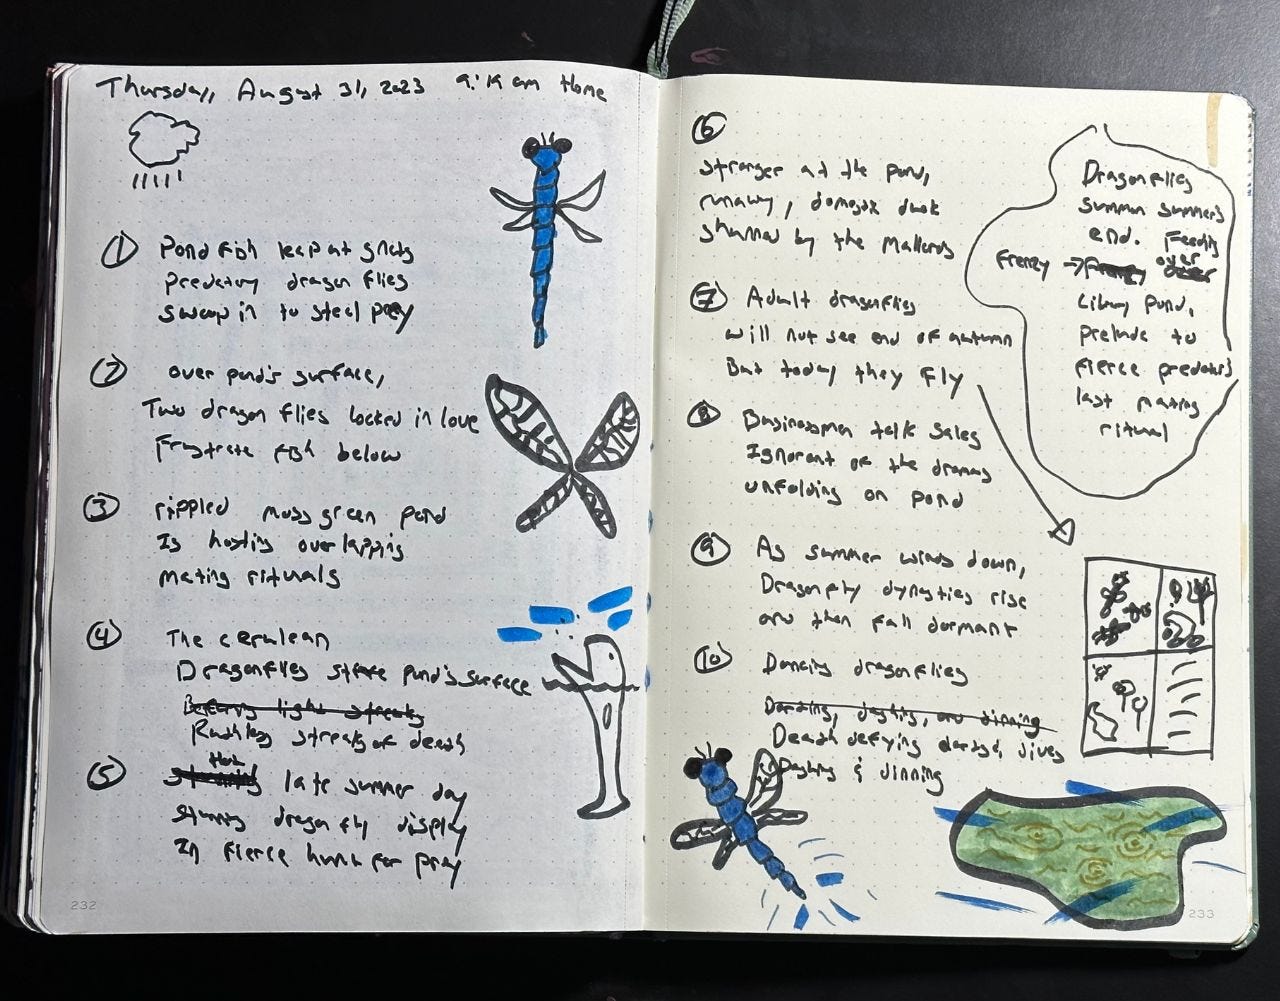 Thursday, August 31, 2023 9:19 am Home
① Pond fish leap at gnats
predatory dragon flies
swoop in to steal prey
② over pond's surface,
Two dragon flies locked in love
Frustrate fish below
③ rippled moss green pond
Is hosting overlapping
mating rituals
④ The cerulean
Dragonflies strafe pond's surface
Ruthless streaks of death
Hot
⑤ late summer day
Stunning dragonfly display
In fierce hunt for prey
232
⑥
stranger at the pond,
runaway, domestic duck
shunned by the Mallards
⑦ Adult dragonflies
will not see end of autumn
But today they fly
⑧ Businessmen talk sales
Ignorant of the dramas
unfolding on pond
⑨ As summer winds down,
Dragonfly dynasties rise
and then fall dormant
⑩ Dancing dragonflies
Darting, dashing, and dinning
Death defying darts & dives
Dashing & dinning
Dragonflies
summon summer's
end. Feeding
Frenzy → Frenzy over
Libby Pond,
prelude to
fierce predator's
last mating
ritual
233